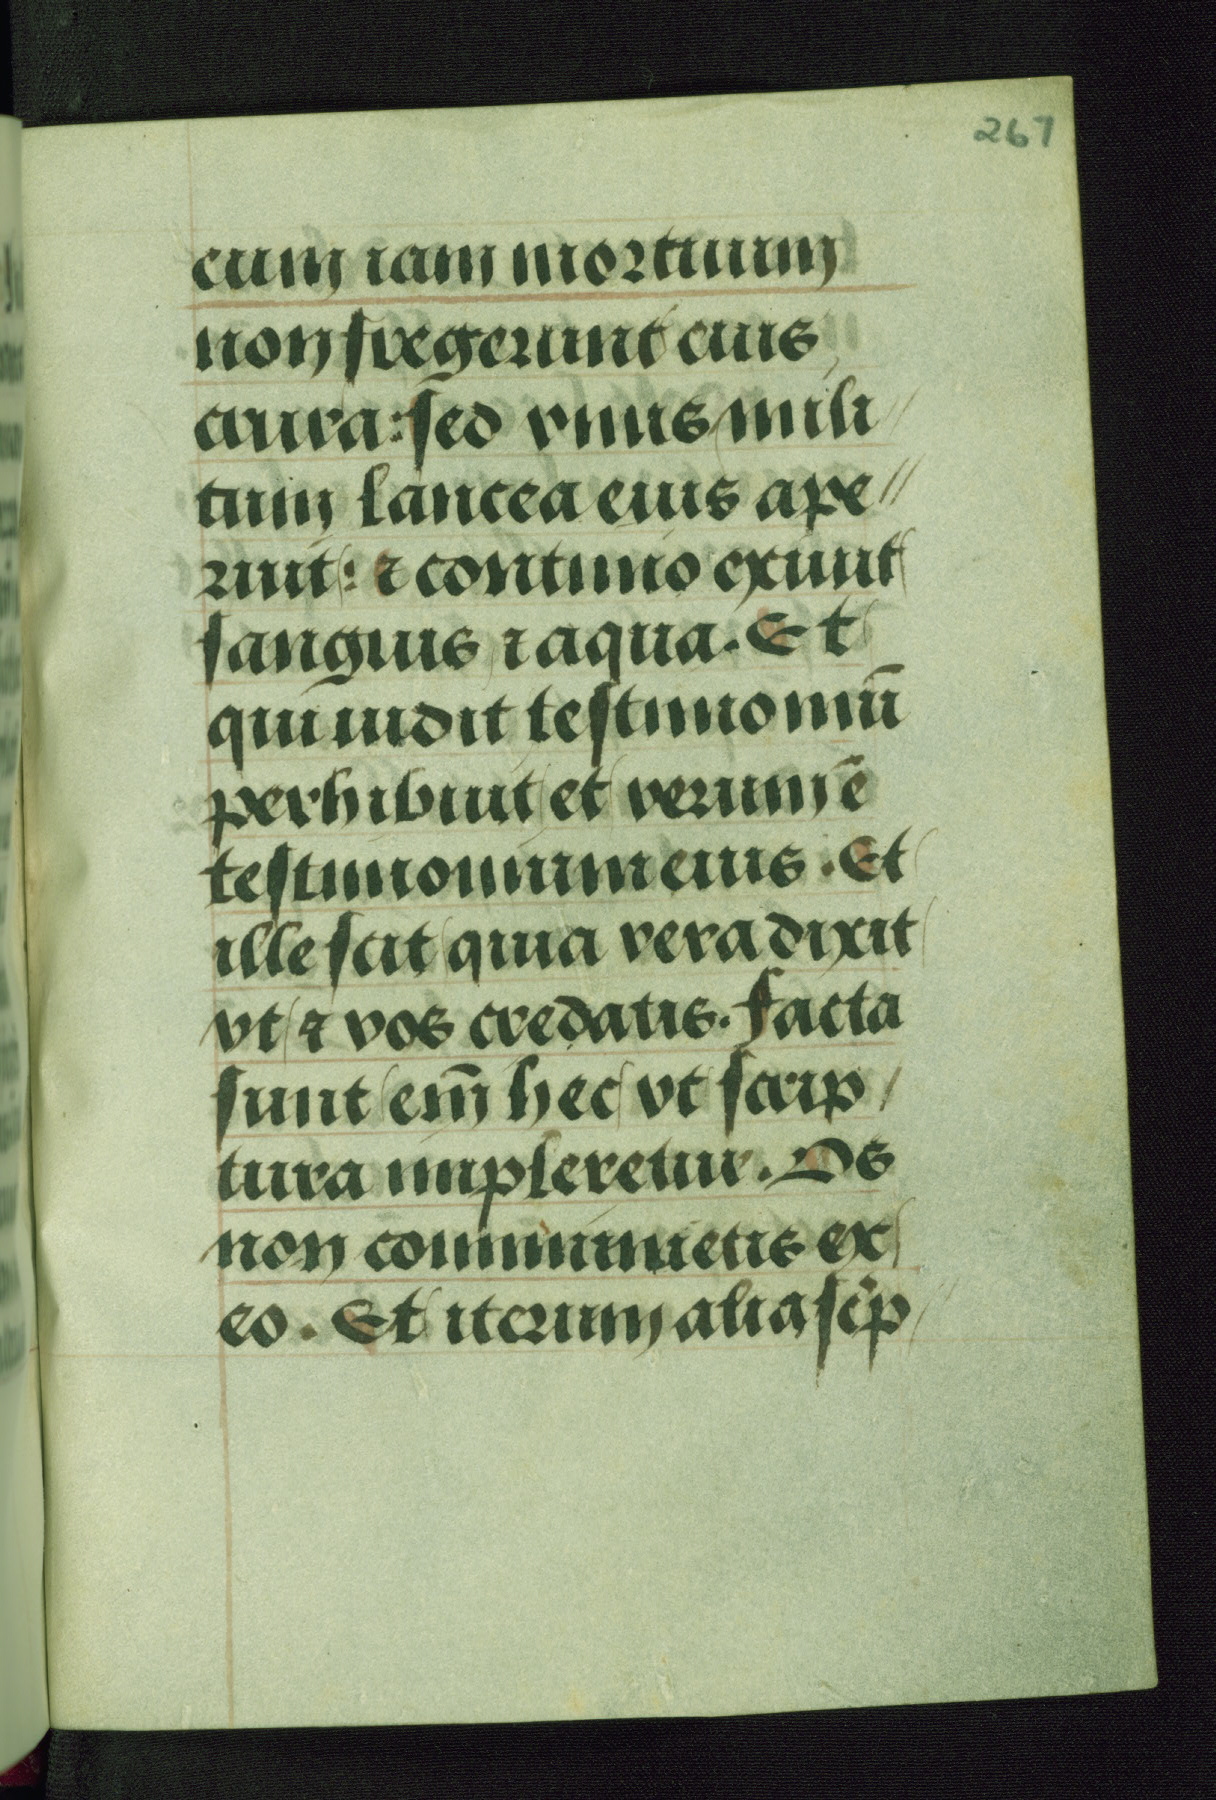 267
eum iam mortuum
non fregerunt eius
crura: sed vnus mili//
tum lancea eius ape//
ruit: ⁊ continuo exiuit
sanguis ⁊ aqua. Et
qui uidit testimoniū
perhibuit et verum ē
testimonium eius. Et
ille scit quia vera dixit
vt ⁊ vos credatis. facta
sunt em̄ hec vt scrip/
tura impleretur. Os
non comminuetis ex
eo. Et iterum alia scͥp//